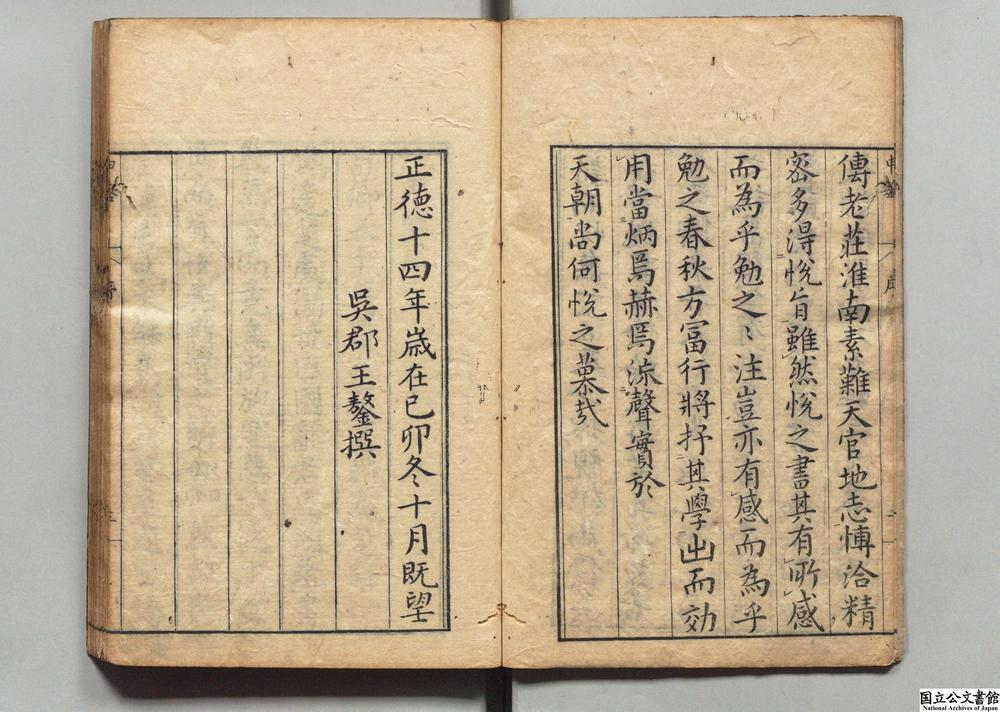 傳老莊淮南素難天官地志博洽精
密多淂悅旨雖然悅之書其有所感
而為乎勉之〻注豈亦有感而為乎
勉之春秋方冨行將抒其學出而効
用當炳焉赫焉流聲實於
天朝尚何悅之慕哉
正徳十四年歳在己卯冬十月既望
吳郡王鏊撰
国立公文書館
National Archives of Japan